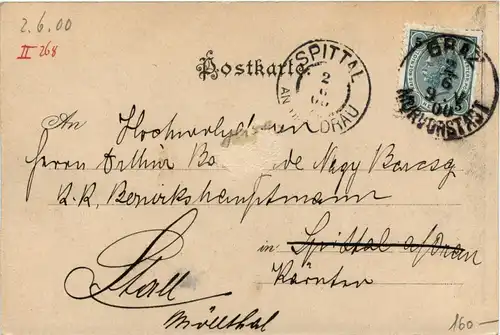 2.6.00
II 268
Postkarte.
SPITTAL
2
6
00
AN DER DRAU
GRAZ
1/6
9
00
MURVORSTADT
An Hochwohlgeboren
Herrn Arthur Ba de Nagy Baraga
K. K. Bezirkshauptmann
in: Spittal a/Drau
Kärnten
Stall
Möllthal
160-